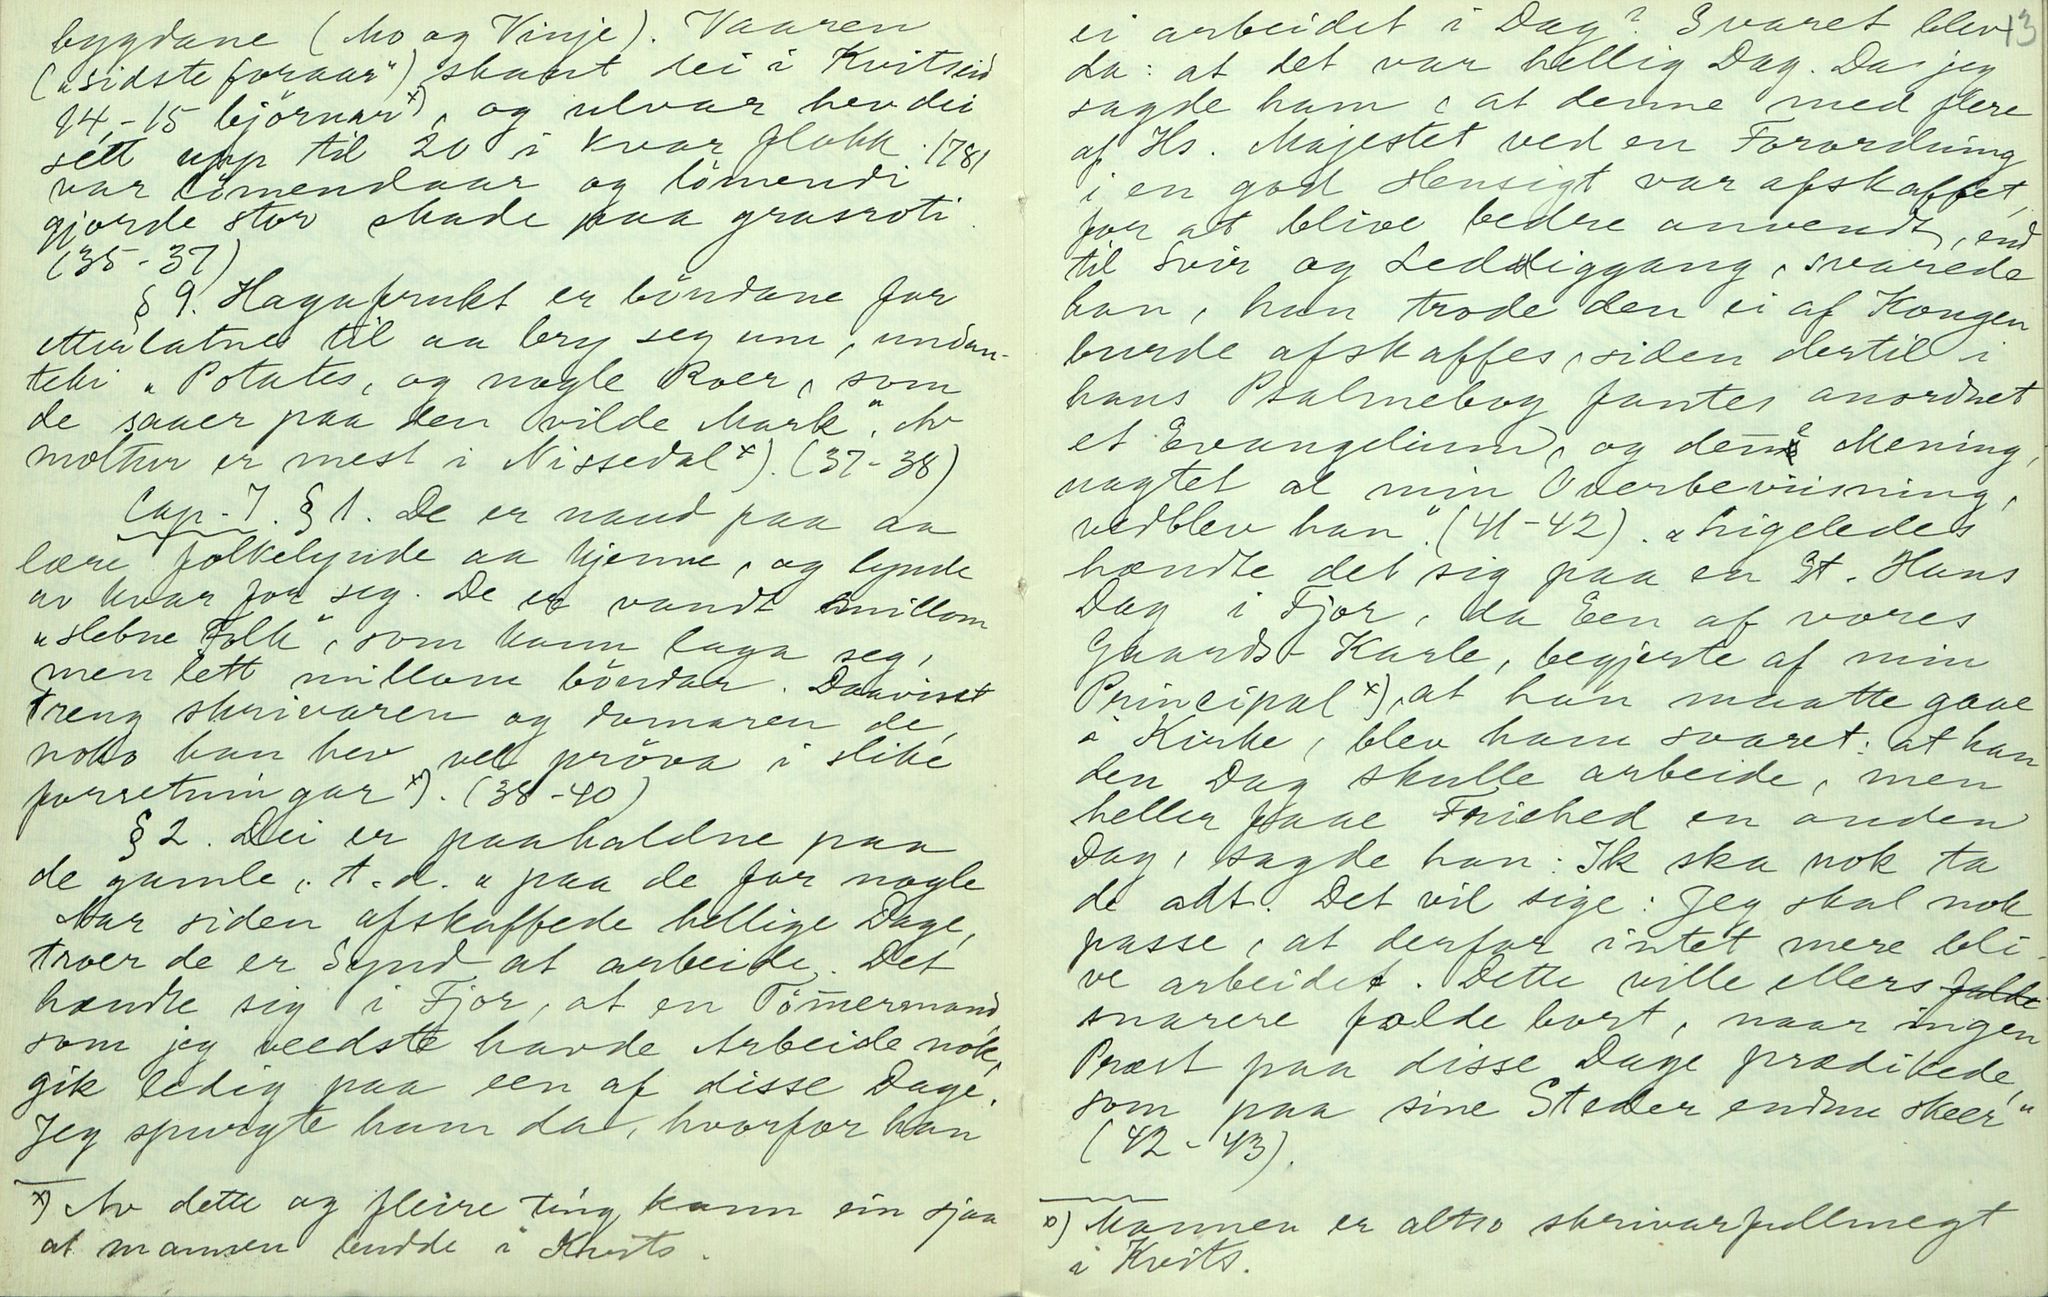 bygdane (Mo og Vinje). Vaaren
("sidste foraar") skaut dei i Kvitseid
14-15 björnar x), og ulvar hev dei
sétt upp til 20 i kvar flokk. 1781
var lömendaar og lömendi
gjorde stor skade paa grasroti.
(35-37)
§ 9. Hagafrukt er böndane for
etterlatne til aa bry seg um, undan-
teki "Potates, og nogle Roer, som
de saaer paa den vilde Mark". Av
molter er mest i Nissedal x). (37-38)
Cap. 7. § 1. De er naud paa aa
lære folkelynde aa kjenne, og lynde
av kvar for seg. De er vandt imillom
"slebne Folk", som kann laga seg,
men lett millom böndar. Daavisst
treng skrivaren og domaren de,
noko han hev vel pröva i slike
forretningar x). (38-40)
§ 2. Dei er paahaldne paa
de gamle, t.d. "paa de for nogle
Aar siden afskaffede hellige Dage,
troer de er Synd at arbeide. Det
hændte sig i Fjor, at en Tömermand,
som jeg veedste havde Arbeide nok,
gik ledig paa een af disse Dage.
Jeg spurgte ham da, hvorfor han
x) Av dette og fleire ting kann ein sjaa
at mannen budde i Kvits.
13
ei arbeidet i Dag? Svaret blev
da: at det var hellig Dag. Da jeg
sagde ham, at denne med flere
af Hs. Majestet ved en Forordning
i en god Hensigt var afskaffet,
for at blive bedre anvendt, end
til Svir og Leddiggang, svarede
han, han trode den ei af Kongen
burde afskaffes, siden dertil i
hans Psalmebog fantes anordnet
et Evangelium, og denne Mening,
uagtet al min Overbeviisning,
vedblev han". (41-42). "Ligeledes
hændte det sig paa en St. Hans
Dag i Fjor, da Een af vores
Gaards-Karle, begjerte af min
Principal x), at han maatte gaae
i Kirke, blev ham svaret: at han
den Dag skulle arbeide, men
heller faae Friehed en anden
Dag, sagde han: Ik ska nok ta
de alt. Det vil sige: Jeg skal nok
passe, at derfor intet mere bli-
ve arbeidet. Dette ville ellers falde
snarere falde bort, naar ingen
Præst paa disse Dage prædikede,
som paa sine Steder endnu skeer"
(42-43).
x) Mannen er altso skrivarfullmegt
i Kvits.